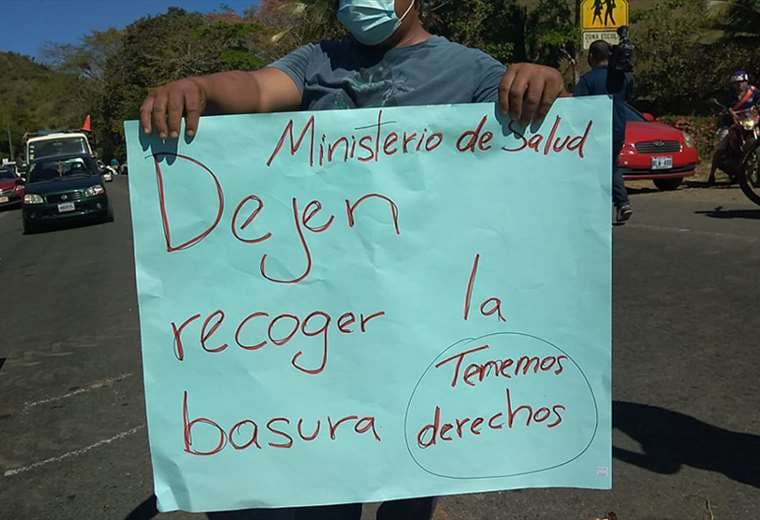 ZONA ESCOLAR
Ministerio de Salud
Dejen
recoger la
basura
Tememos
derechos